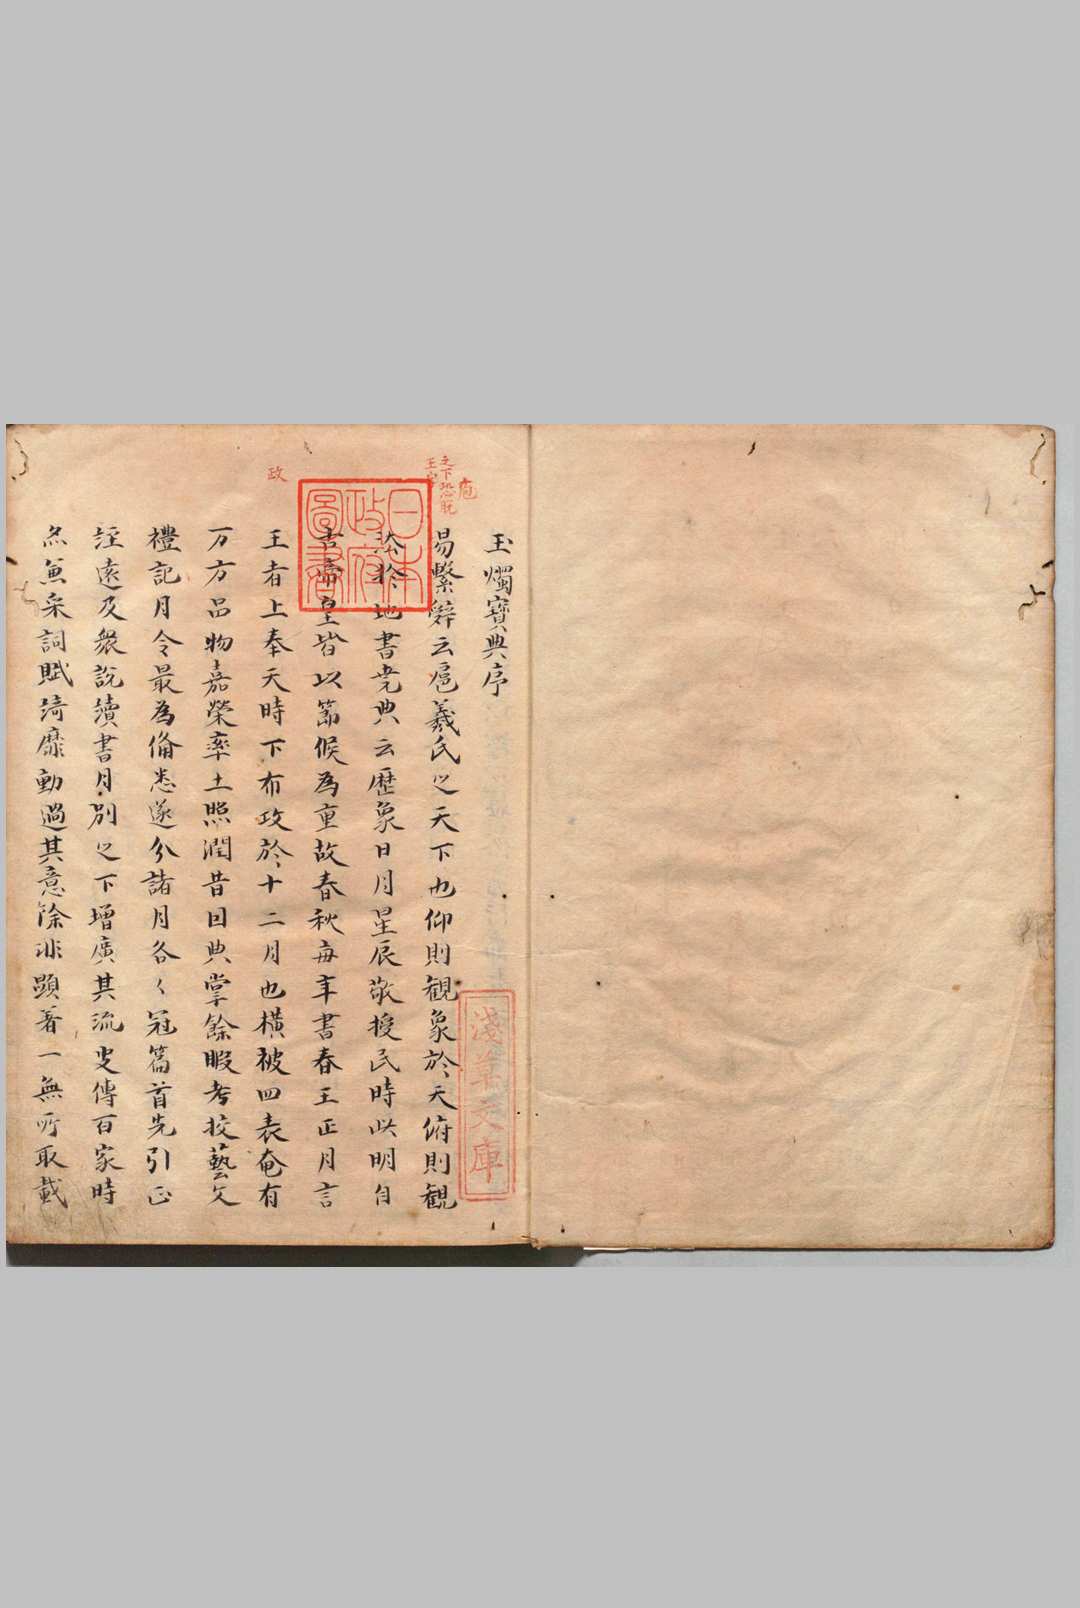 玉燭寶典序
易繫辞云庖羲氏之天下也仰則観象於天俯則観
法於地書尭典云歷象日月星辰敬授民時此明自
古帝皇皆以節候為重故春秋每年書春王正月言
王者上奉天時下布政於十二月也橫被四表奄有
万方品物嘉榮率土照潤昔因典掌餘暇考挍藝文
禮記月令最為俻悉遂分諸月各〻冠篇首先引正
經逺及衆說續書月別之下增廣其流史傳百家時
亦兼采詞賦綺靡動過其意除非顯著一無所取載
庖
之下恐脱
王字
政
日本
政府
圖書
淺草文庫